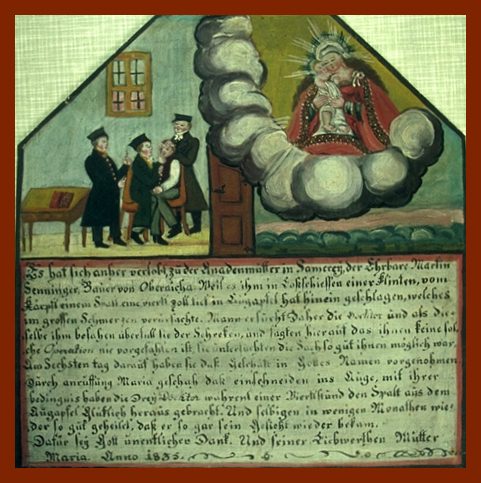 Es hat sich anher verlobt zu der Gnadenmutter in Samerey, der Ehrbare Martin
Senninger, Bauer von Oberaicha. Weil es ihm in Losschiessen einer Flinten, vom
einem Spalt eine viertl Zoll tief in Augapfel hat hinein geschlagen, welches
im großen Schmerzen verursachte. Mann ersucht daher die Docktor und als die-
selbe ihm besahen überfall sie der Schreken, und sagten hierauf das ihnen keine sol-
che Operation nie vorgefahlen ist, sie untersuchten die Sach so gut ihnen möglich war.
Am Sechsten tag darauf haben sie daß Geschäft in Gottes Namen vorgenohmen
Durch anrüffung Maria geschah daß einschneiden ins Auge, mit ihrer
bedingnis haben die Drey Docktor während einer Viertlstund den Spalt aus dem
Augapfel Glücklich heraus gebracht. Und selbigen in wenigen Monathen wie-
der so gut geheilet, daß er so gar sein Gesicht wieder bekam.
Dafür sey Gott unentlicher Dank. Und seiner Liebwerthen Mutter
Maria. Anno 1835.